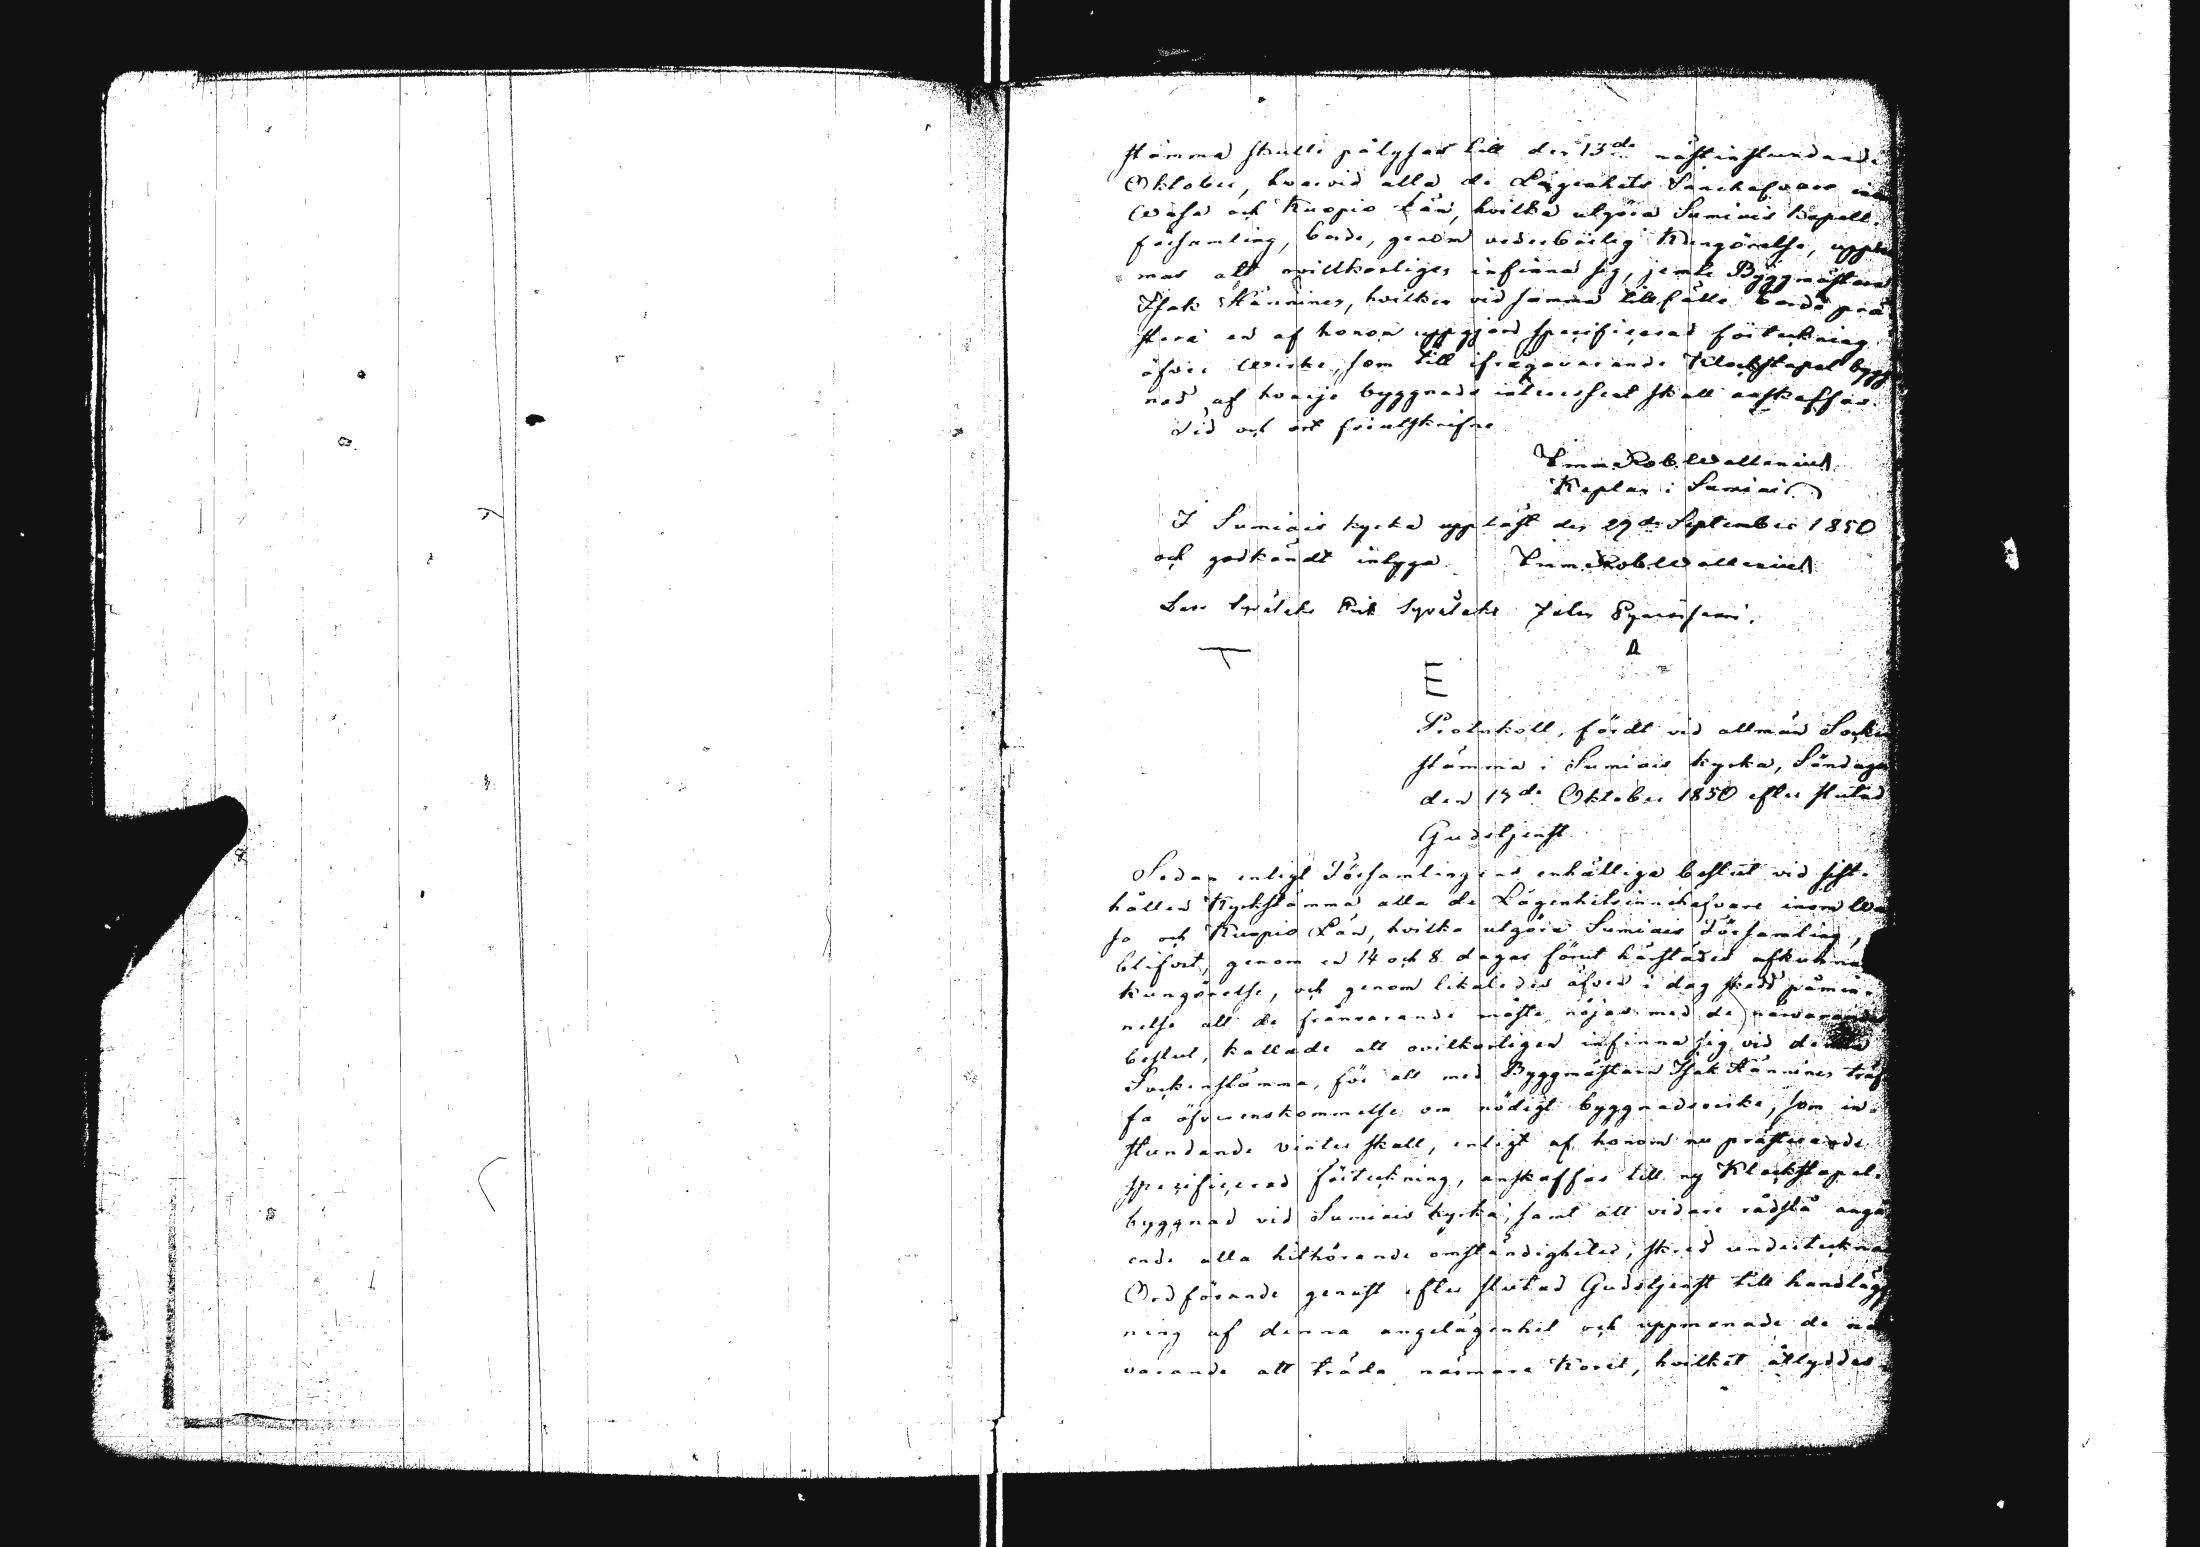 stämma skulle pålysas till den 13de nästinstundande
Oktober, hvarvid alla de Lägenhets Innehafvare inom
Wasa och Kuopio Län, hvilka utgöra Sumiais kapell-
församling, borde, genom vederbörlig Kungörelse, uppma
nas att ovillkorligen infinna sig, jemte Byggmästaren
Isak Känninen, hvilken vid samma tillfälle borde prä
stera en af honom uppgjord specificerad förteckning
öfver Wirke, som till ifrågavarande Klockstapel bygg
nad af hvarje byggnads interessent skall anskaffas.
Tid och ort förutskrifne
Imm. Rob. Wallenius
Kaplan i Sumiais
I Sumiais kyrka uppläst den 29de September 1850
och godkändt intyga Imm Rob. Wallenius
E
Protokoll, fördt vid allmän Socken
stämma i Sumiais kyrka, Söndagen
den 13de Oktober 1850 efter slutad
Gudstjenst
Sedan enligt Församlingens enhälliga beslut vid sist-
hållen Kyrkstämma alla de Lägenhetsinnehafvare inom Wa
sa och Kuopio Län, hvilka utgöra Sumiais Församling,
blifvit, genom en 14 och 8 dagar förut härstädes afkunnad
kungörelse, och genom likaledes äfven i dag skedd påmin-
nelse att de frånvarande måste nöjas med de närvarandes
beslut, kallade att ovilkorligen infinna sig vid denna
Sockenstämma, för att med Byggmästaren Isak Känninen träf
fa öfverenskommelse om nödigt byggnadsvirke, som in-
stundande vinter skall, enligt af honom nu presterande
specificerad förteckning, anskaffas till ny Klockstapel-
byggnad vid Sumiais kyrka, samt att vidare rådslå angå
ende alla hithörande omständigheter, skred undertecknad
Ordförande genast efter slutad Gudstjenst till handlägg
ning af denna angelägenhet och uppmanade de när
varande att träda närmare Koret, hvilket åtlyddes.